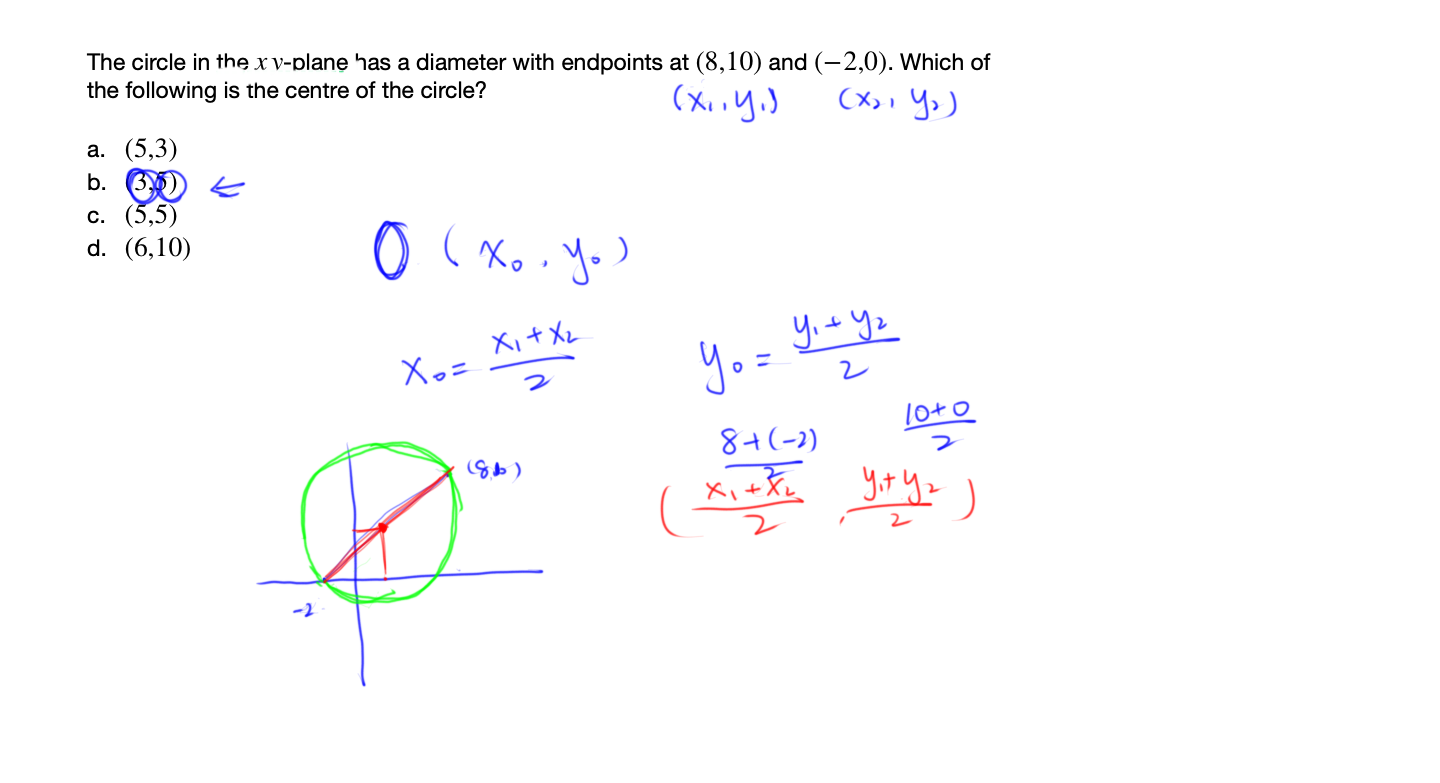 The circle in the xy-plane has a diameter with endpoints at (8,10) and (−2,0). Which of
the following is the centre of the circle?
(x₁, y₁) (x₂, y₂)
a. (5,3)
b. (3,5) ←
c. (5,5)
d. (6,10)
O (x₀, y₀)
x₀ = (x₁ + x₂)/2 y₀ = (y₁ + y₂)/2
(8 + (−2))/2 (10 + 0)/2
((x₁ + x₂)/2, (y₁ + y₂)/2)
−2